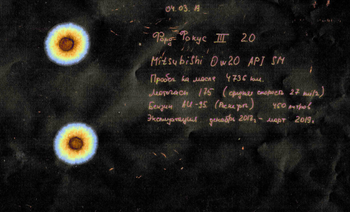 04.03.19
Форд Фокус III 2.0
Mitsubishi 0w20 API SM
Пробег на масле 4736 км.
моточасы 175 (средняя скорость 27 км/ч)
Бензин АИ-95 (Лукойл) 450 литров
Эксплуатация декабрь 2017г - март 2019г.